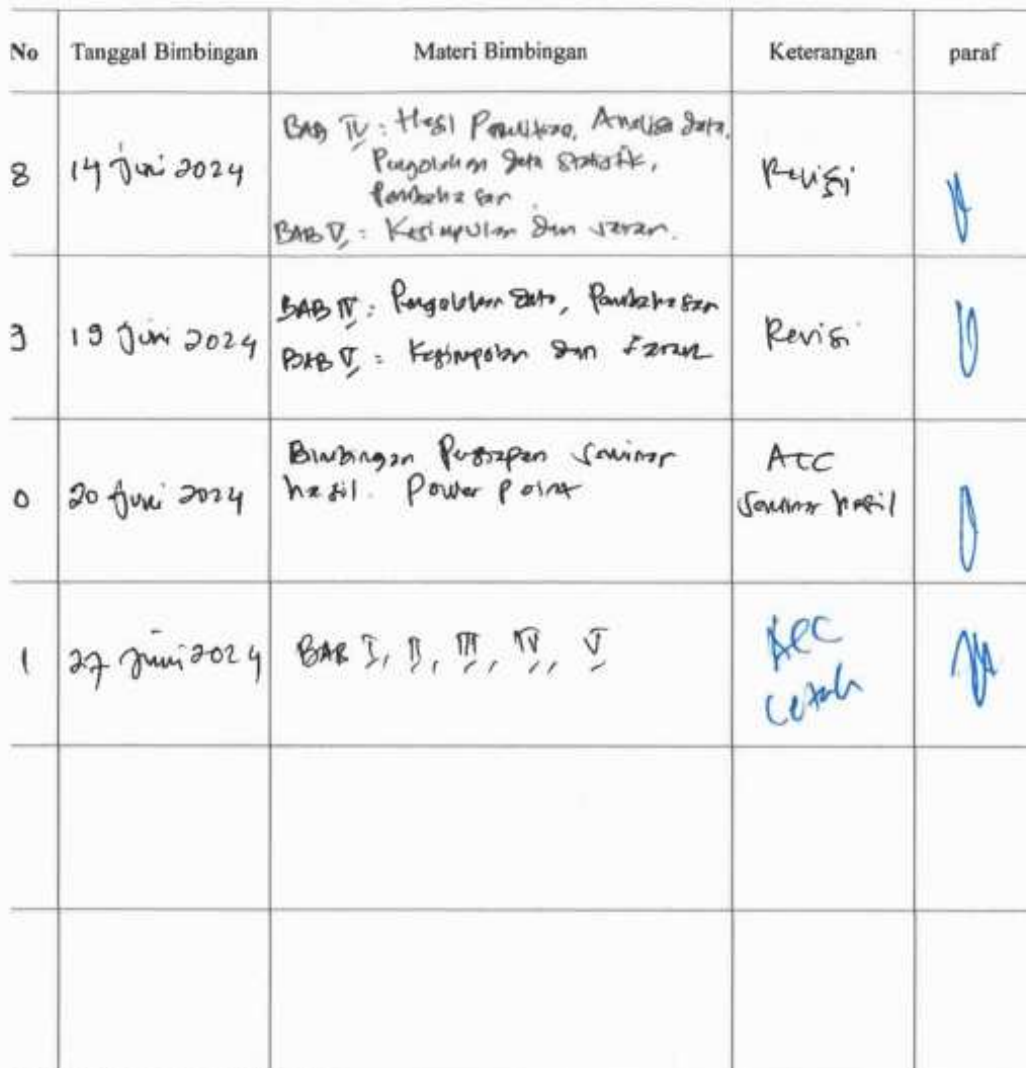 No Tanggal Bimbingan Materi Bimbingan Keterangan paraf
8 14 Juni 2024 BAB IV : Hasil Penelitian, Analisa data, Revisi
Pengolahan data statistik,
Pembahasan
BAB V : Kesimpulan dan saran.
9 19 Juni 2024 BAB IV : Pengolahan data, Pembahasan Revisi
BAB V : Kesimpulan dan Saran
0 20 Juni 2024 Bimbingan Persiapan seminar ACC
hasil. Power Point seminar hasil
1 27 Juni 2024 BAB I, II, III, IV, V ACC
Cetak